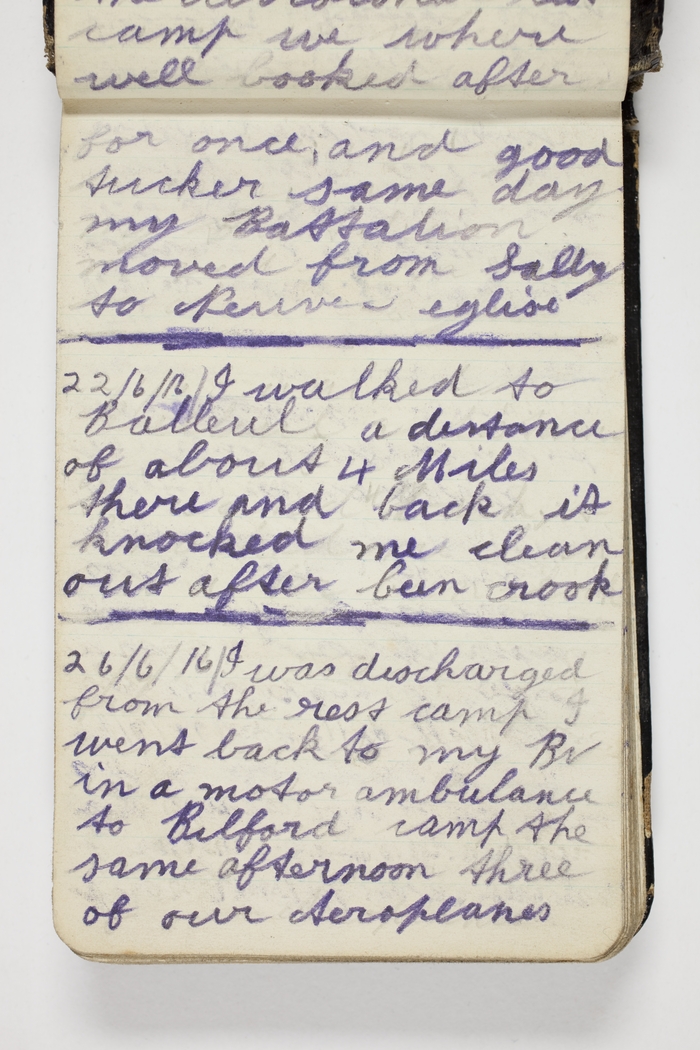 camp we where
well booked after
for once, and good
tucker same day
my Battalion
moved from Sally
to eglise
22/6/16/ I walked to
Balleul a distance
of about 4 Miles
there and back it
knocked me clean
out after been crook
26/6/16/ I was discharged
from the rest camp I
went back to my Bn
in a motor ambulance
to Bilford camp the
same afternoon three
of our Aeroplanes